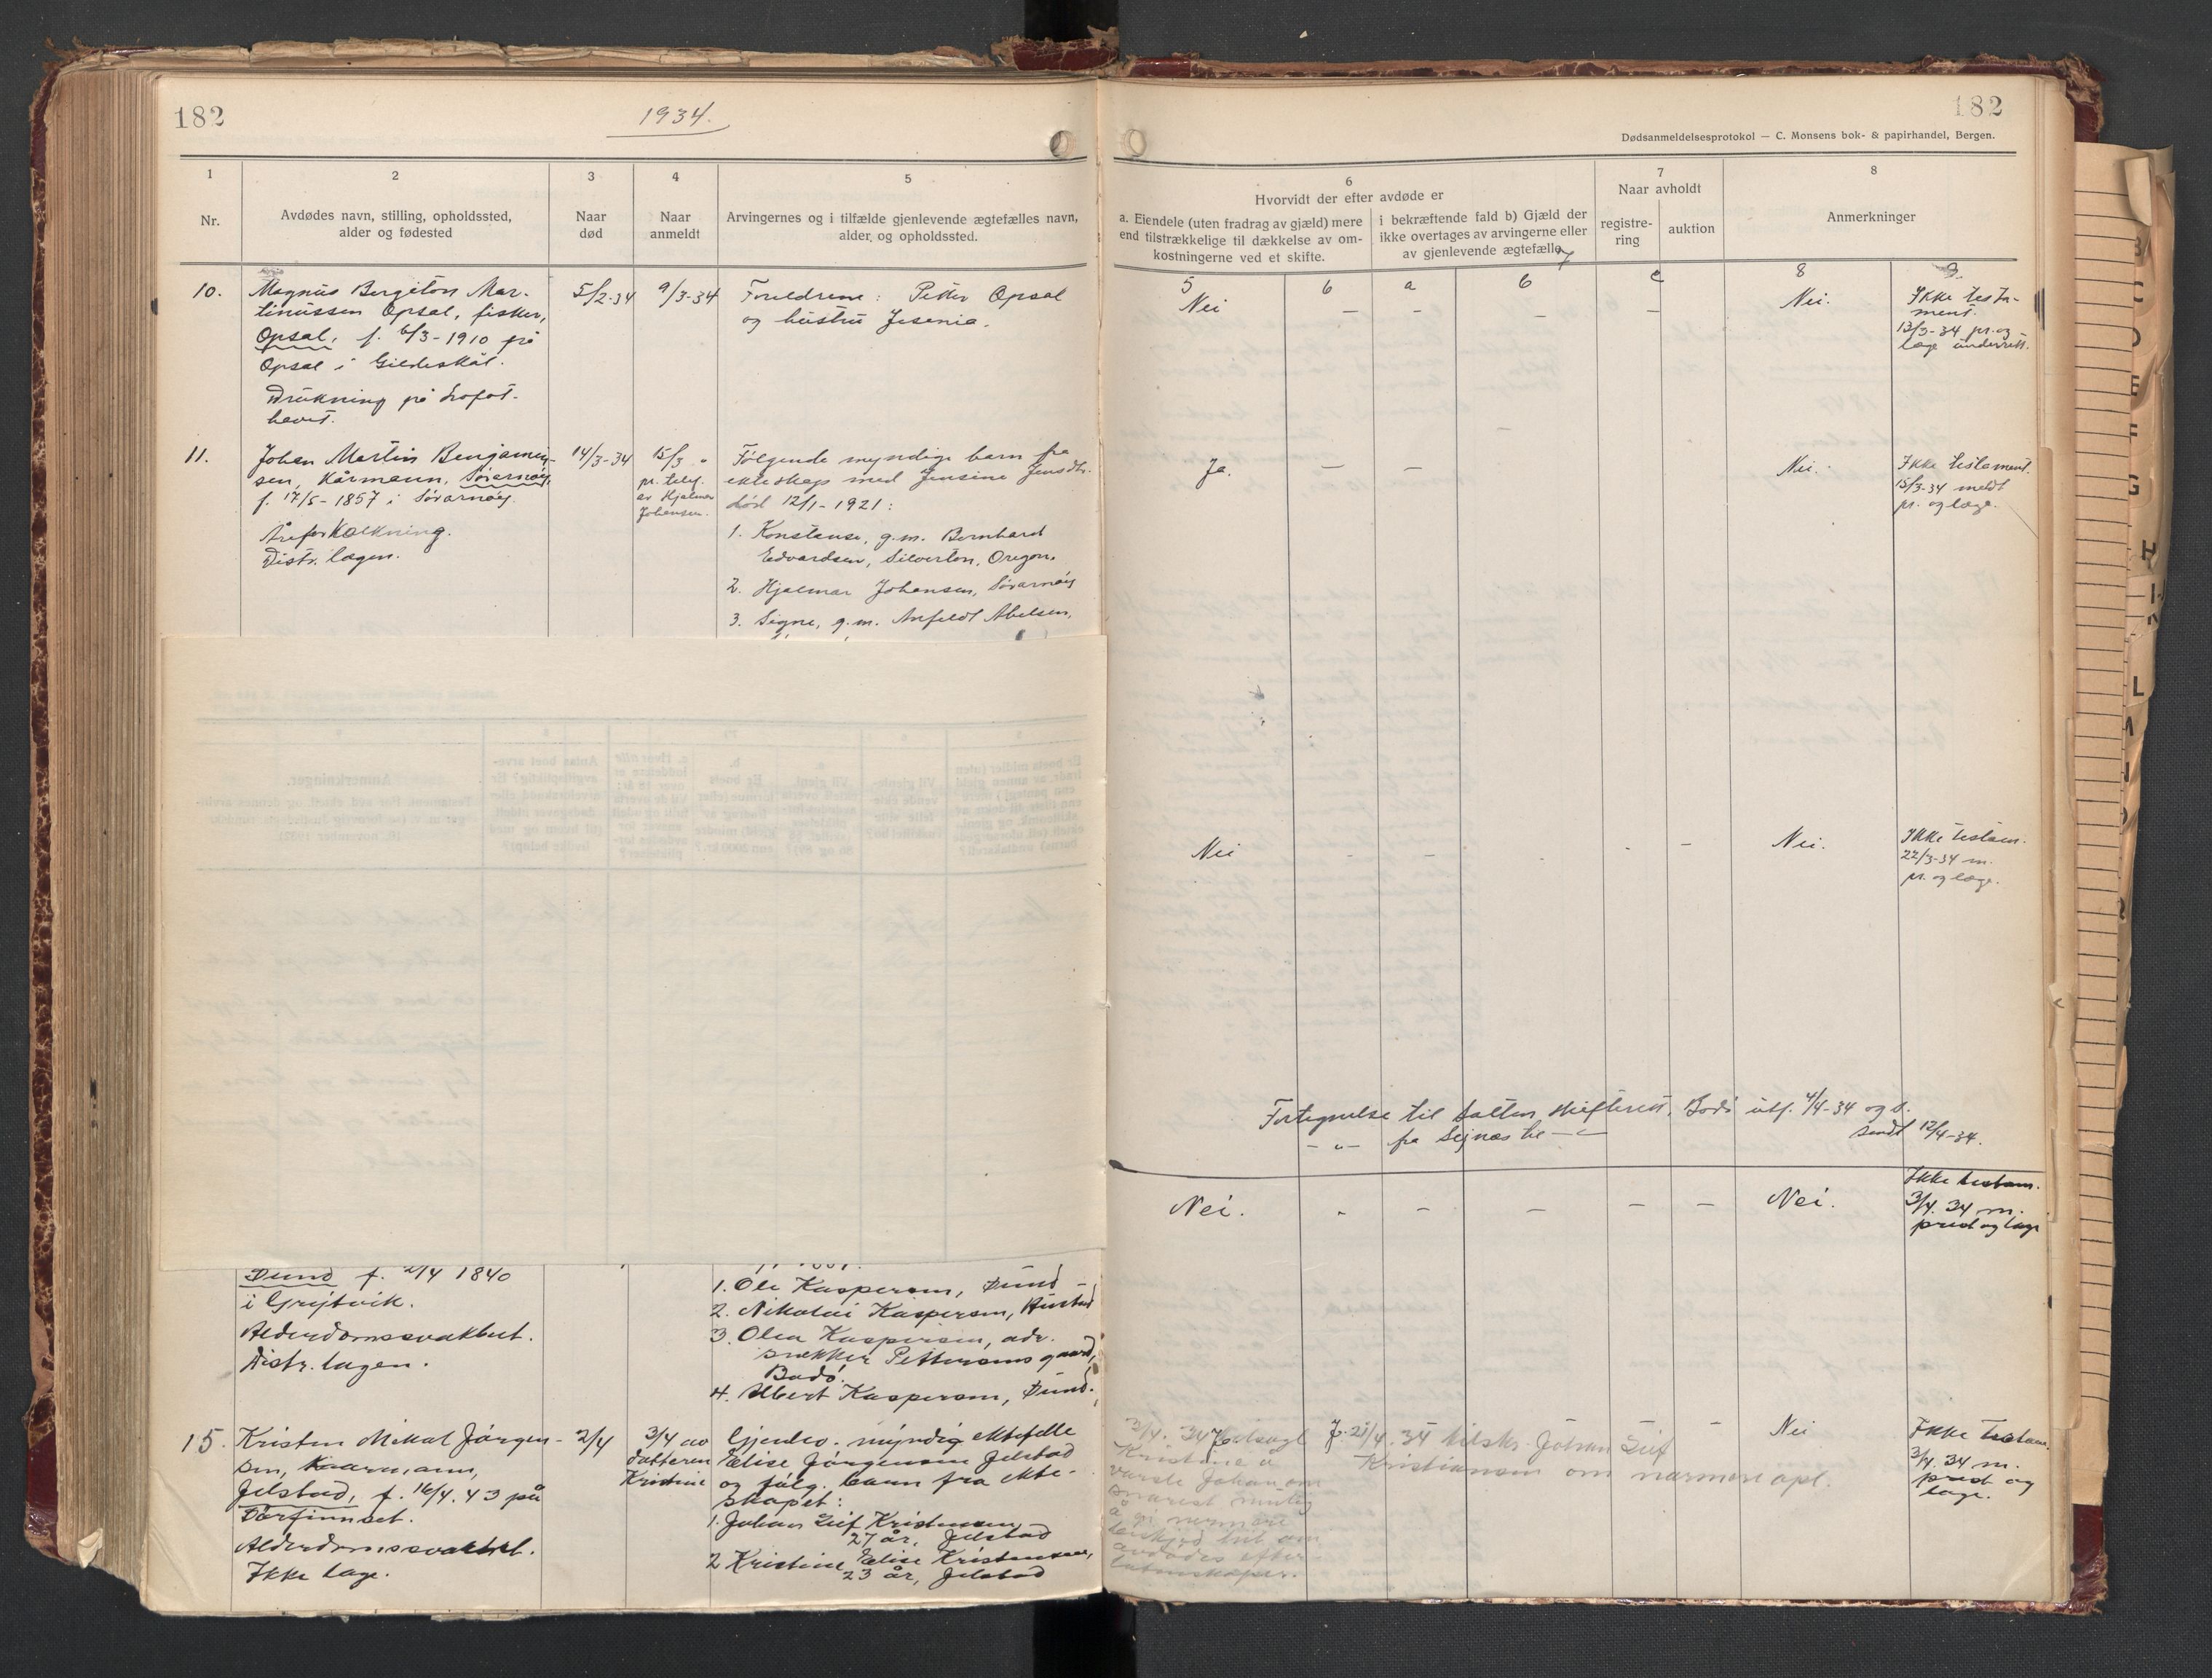 182
1934.
1
2
3
4
5
Nr.
Avdødes navn, stilling, opholdssted,
alder og fødested
Naar
død
Naar
anmeldt
Arvingernes og i tilfælde gjenlevende ægtefælles navn,
alder og opholdssted.
10.
Magnus Bergiton Mar-
tinussen Opsal, fisker,
Opsal, f. 6/3-1910 på
Opsal i Gildeskål.
Drukning på Lofot-
havet.
5/2-34
9/3-34
Foreldrene: Petter Opsal
og hustru Jesenia.
11.
Johan Martin Benjamin-
sen, Kårmann, Sørarnøy,
f. 17/5-1857 i Sørarnøy.
Åreforkalkning.
Distr. lægen.
14/3-34
15/3
pr. telef.
av Hjalmar
Johansen.
Følgende myndige barn fra
ekteskap med Jensine Jensdtr.
død 12/1-1921:
1. Konstanse, g.m. Bernhard
Edvardsen, Silverton, Oregon.
2. Hjalmar Johansen, Sørarnøy
3. Signe, g.m. Arfeldt Abelsen,
Sund f. 2/4 1840
i Grytvik.
Alderdomssvakhet.
Distr. lagen.
1. Ole Kaspersen, Sund
2. Nikolai Kaspersen, Hustad
3. Olea Kaspersen, adr.
snekker Pettersensgaard,
Bodø.
4. Albert Kaspersen, Sund.
15.
Kristen Mikal Jørgen-
sen, Kaarmann,
Jelstad, f. 16/4. 43 på
Torfinnset.
Alderdomssvakhet.
Ikke lage.
2/4
3/4 av
datteren
Kristine
Gjenlev. myndig ektefelle
Elise Jørgensen Jelstad
og følg. barn fra ekte-
skapet:
1. Johan Leif Kristensen
27 år, Jelstad
2 Kristine Elise Kristensen,
23 år, Jelstad
182
Dødsanmeldelsesprotokol — C. Monsens bok- & papirhandel, Bergen.
6
Hvorvidt der efter avdøde er
a. Eiendele (uten fradrag av gjæld) mere
end tilstrækkelige til dækkelse av om-
kostningerne ved et skifte.
i bekræftende fald b) Gjæld der
ikke overtages av arvingerne eller
av gjenlevende ægtefælle
7
7
Naar avholdt
registre-
ring
auktion
8
Anmerkninger
5 6 a b c 8 9.
Nei — — — — Nei.
Ikke testa-
ment.
13/3-34 pr. og
læge underrett.
Ja. — — Nei.
Ikke testament.
15/3-34 meldt
pr. og læge.
Nei - — - - — Nei.
Ikke testam.
22/3-34 m.
pr. og læge.
Fortegnelse til Salten skifterett, Bodø utf. 4/4-34 og s.
— " — fra Seines til — " —
sendt 12/4-34.
Nei. - — — — — Nei.
Ikke testam.
3/4. 34 m.
prest og lage
3/4. 34 tilsagt
Kristine å
varsle Johan om
snarest mulig
å gi nærmere
beskjed hit om
avdødes efter-
latenskaper.
J. 21/4. 34 tilskr. Johan Leif
Kristiansen om nærmere opl.
— Nei
Ikke testam.
3/4. 34 m.
prest og
lage.
B
C
D
E
F
G
H
I
K
L
M